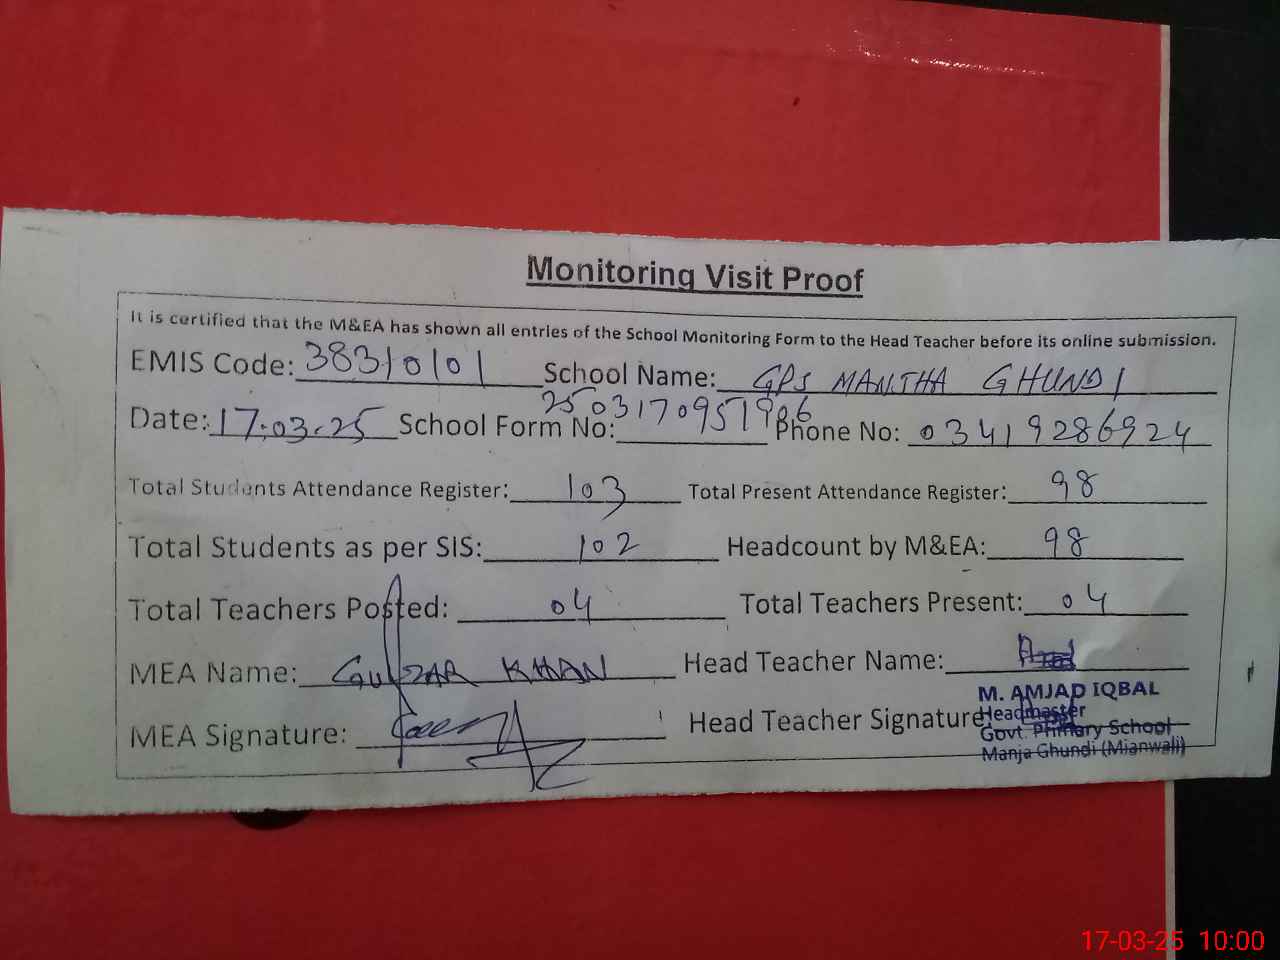 Monitoring Visit Proof
It is certified that the M&EA has shown all entries of the School Monitoring Form to the Head Teacher before its online submission.
EMIS Code: 38310101 School Name: GPS MANJHA GHUNDI
Date: 17.03.25 School Form No: 250317095906 Phone No: 03419286924
Total Students Attendance Register: 103 Total Present Attendance Register: 98
Total Students as per SIS: 102 Headcount by M&EA: 98
Total Teachers Posted: 04 Total Teachers Present: 04
MEA Name: GULZAR KHAN Head Teacher Name:
MEA Signature: Head Teacher Signature
M. AMJAD IQBAL
Headmaster
Govt. Primary School
Manja Ghundi (Mianwali)
17-03-25 10:00